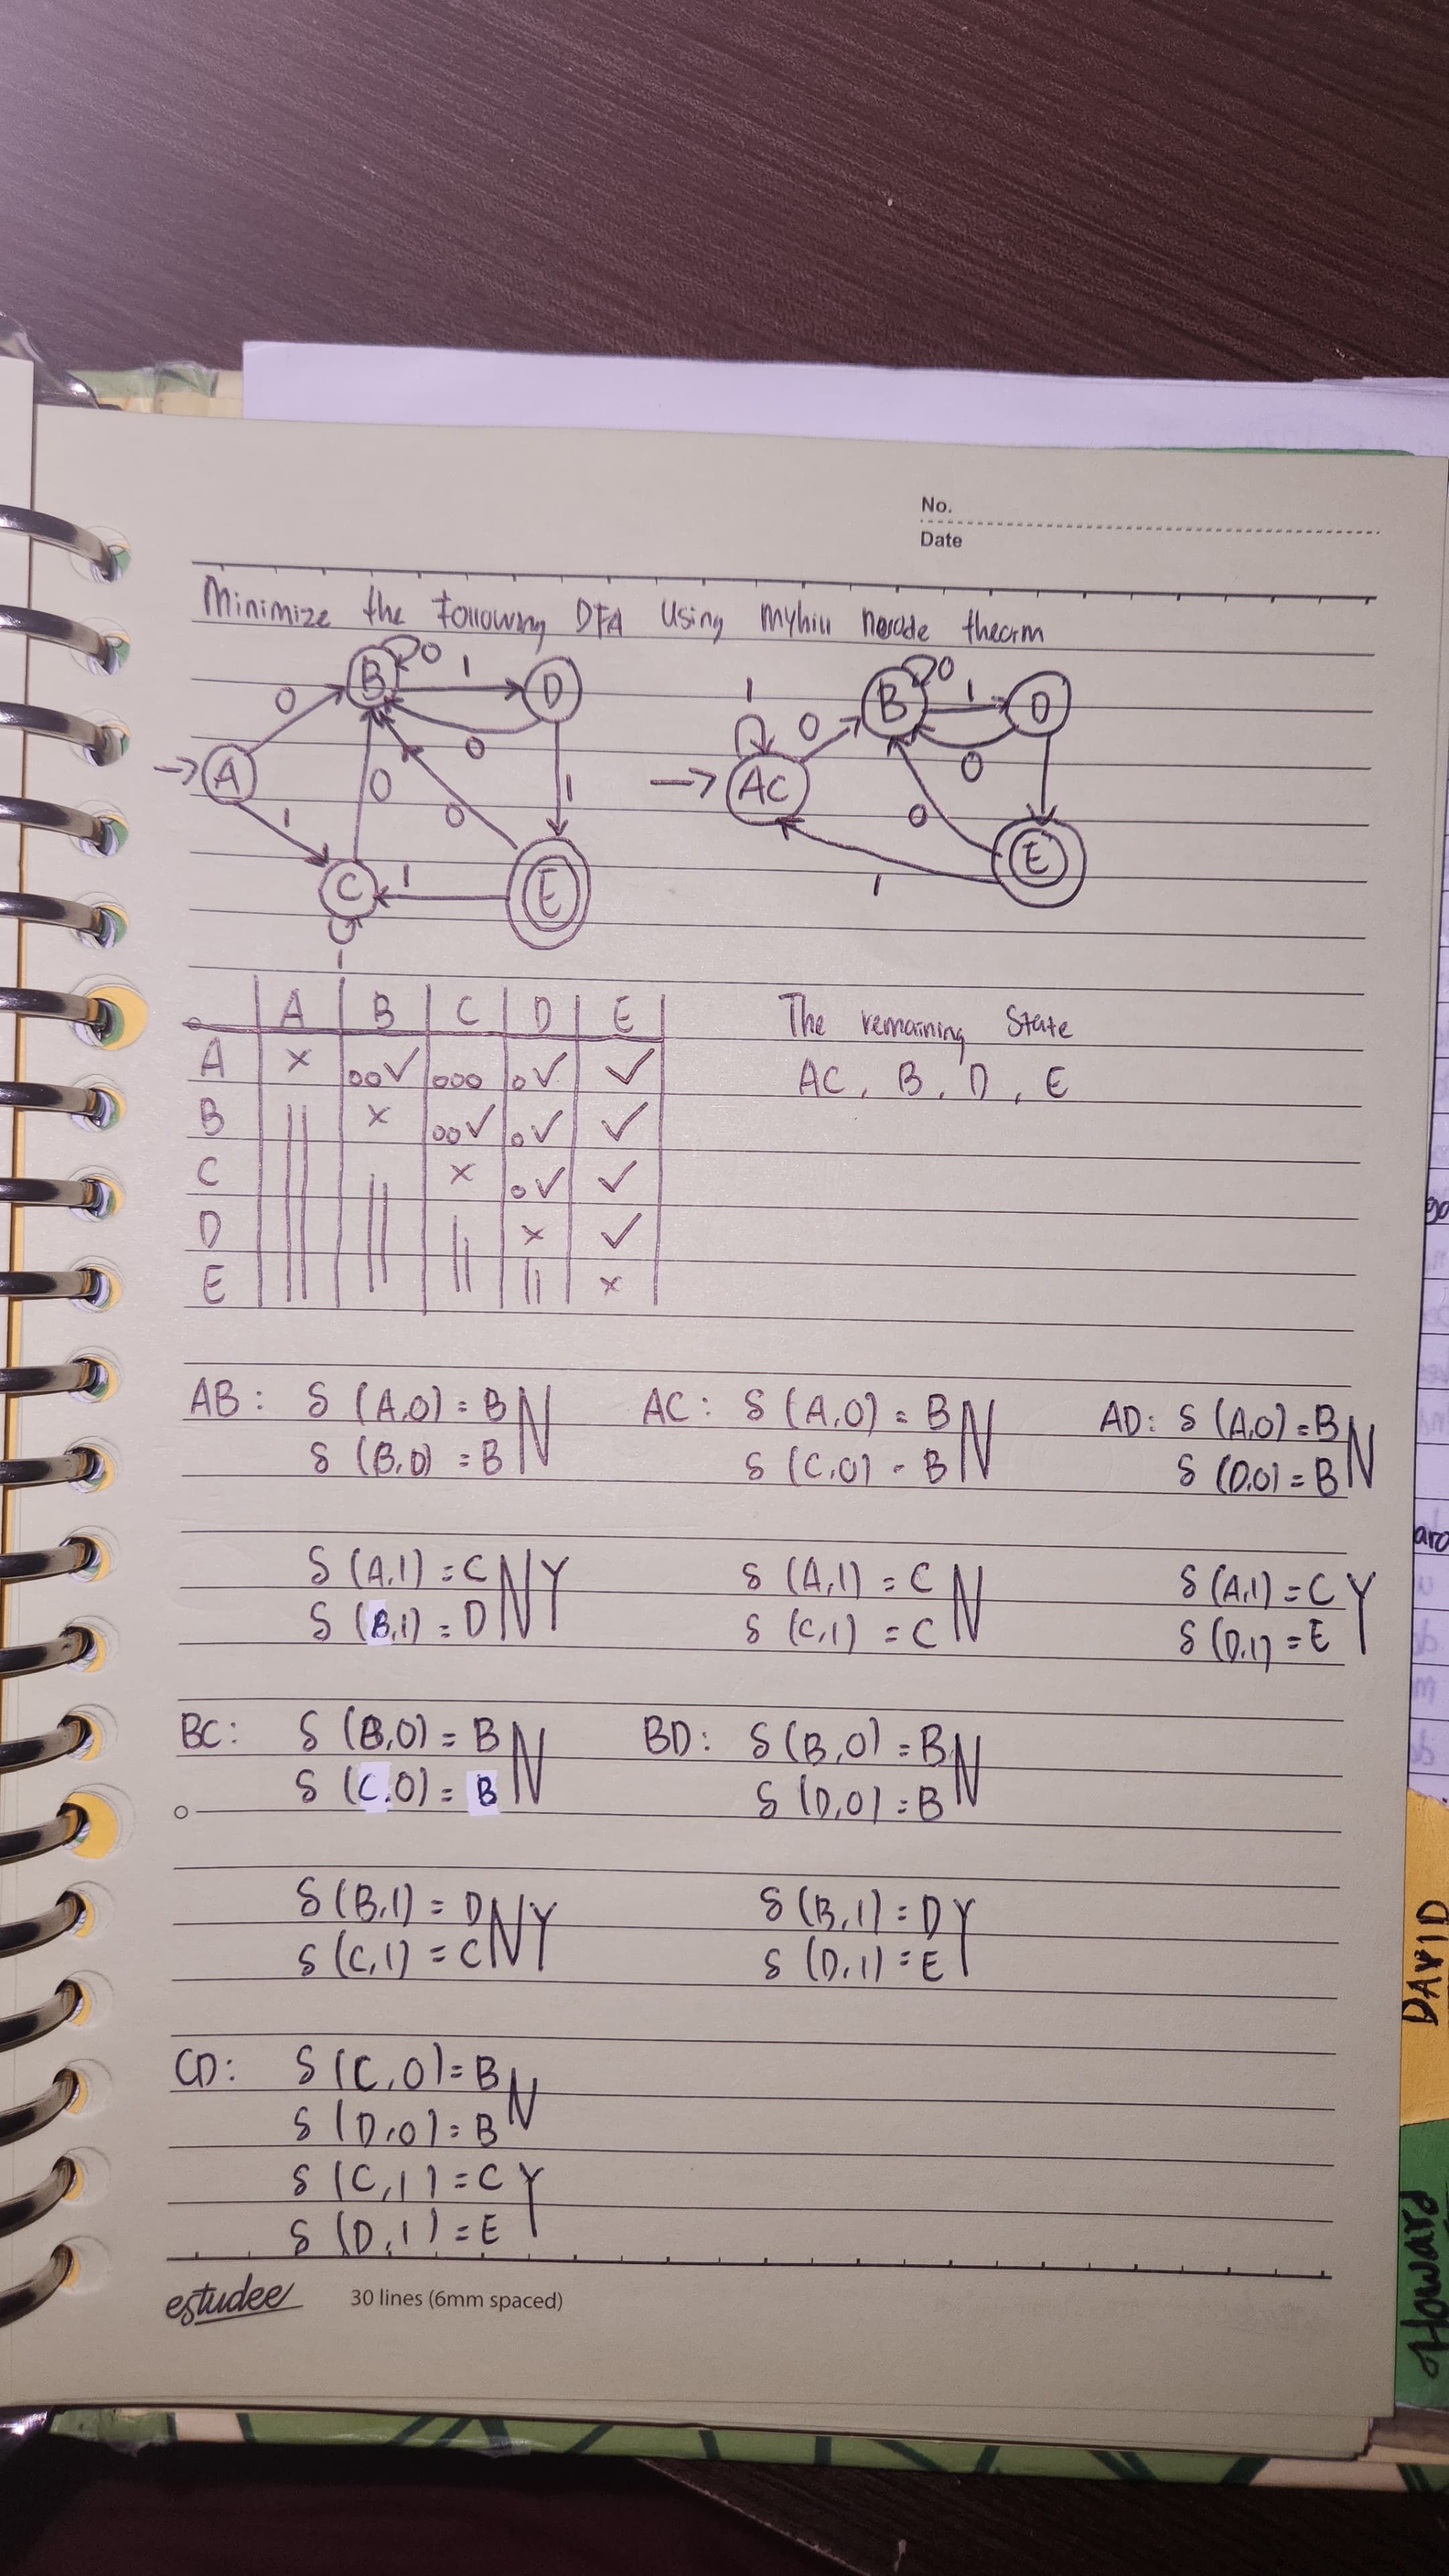 No.
Date
Minimize the following DFA using myhill nerode thearm
0 B 0 1 D
0 0 0 1
A 1
C 1 E
1
1 0 B 0 1 D
AC 0 0
1 E
A B C D E
A × oo✓ ooo o✓ ✓
B × oo✓ o✓ ✓
C × o✓ ✓
D × ✓
E ×
The remaining State
AC, B, D, E
AB: δ (A,0) = B N
δ (B,0) = B
δ (A,1) = C N Y
δ (B,1) = D
AC: δ (A,0) = B N
δ (C,0) = B
δ (A,1) = C N
δ (C,1) = C
AD: δ (A,0) = B N
δ (D,0) = B
δ (A,1) = C Y
δ (D,1) = E
BC: δ (B,0) = B N
δ (C,0) = B
δ (B,1) = D N Y
δ (C,1) = C
BD: δ (B,0) = B N
δ (D,0) = B
δ (B,1) = D Y
δ (D,1) = E
CD: δ (C,0) = B N
δ (D,0) = B
δ (C,1) = C Y
δ (D,1) = E
estudee 30 lines (6mm spaced)
DAVID
Howard